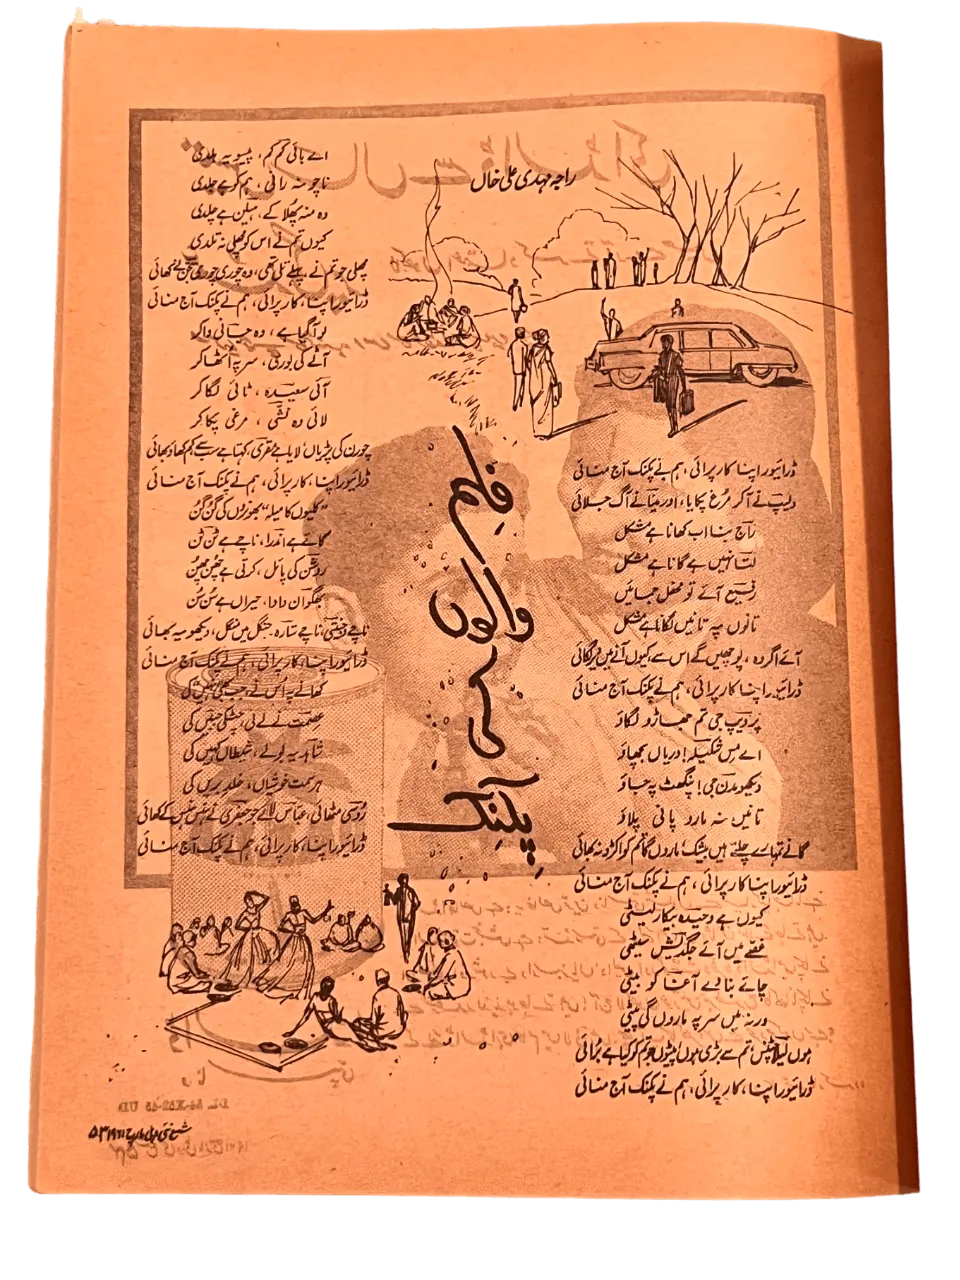 راجہ مہدی علی خاں
فلم والوں کی پکنک
ڈرائیور اپنا کار پرائی، ہم نے پکنک آج منائی
دلیپ نے آ کر مرغ پکایا، اور مینا نے آگ جلائی
راج بنا اب کھانا ہے مشکل
لتا نہیں ہے گانا ہے مشکل
رفیع آئے تو محفل جمائیں
تانوں پہ تانیں لگانا ہے مشکل
آئے اگر وہ، پوچھیں گے اس سے، کیوں آنے میں دیر لگائی
ڈرائیور اپنا کار پرائی، ہم نے پکنک آج منائی
پردیپ جی تم جھاڑو لگاؤ
اے مس شکیلہ! دریاں بچھاؤ
دیکھو مدن جی! پنگھٹ پہ جاؤ
تانیں نہ مارو پانی پلاؤ
گانے تمہارے چلتے ہیں بیشک، ماروں گا تم کو اکڑ دکھائی
ڈرائیور اپنا کار پرائی، ہم نے پکنک آج منائی
کیوں ہے وحیدہ بیکار لیٹی
غصے میں آئے جگدیش سیٹھی
چائے بنا دے آغا کو بیٹی
ورنہ میں سر پہ ماروں گی پیٹی
ہوں للیتا پنس، تم سے بڑی ہوں، پیٹوں جو تم کو کیا ہے برائی
ڈرائیور اپنا، کار پرائی، ہم نے پکنک آج منائی
اے بائی کم کم، پیسو یہ ہلدی
ناچو نہ رانی، ہم کو ہے جلدی
وہ منہ پھلا کے، ہیلن ہے چلدی
کیوں تم نے اس کو مچھلی نہ تلدی
مچھلی جو تم نے پہلے تلی تھی، وہ چوری چوری کھائی
ڈرائیور اپنا، کار پرائی، ہم نے پکنک آج منائی
لو آ گیا ہے، وہ جانی واکر
آٹے کی بوری، سر پہ اٹھا کر
آئی سعیدہ، ٹائی لگا کر
لائی وہ نشی، مرغی پکا کر
چورن کی پڑیاں لایا ہے مقری، کہتا ہے سب سے کم کھاؤ بھائی
ڈرائیور اپنا، کار پرائی، ہم نے پکنک آج منائی
"کلیوں کا میلہ" بھونروں کی گن گن
گاتے ہے اندرا، ناچے ہے ٹن ٹن
روشن کی پائل، کرتی ہے چھن چھن
بھگوان دادا، حیراں ہے سن سن
ناچے، ناچے ستارہ، جنگل میں منگل، دیکھو یہ بھائی
ڈرائیور اپنا، کار پرائی، ہم نے پکنک آج منائی
کھانے پہ اس نے جب
عصمت نے لے لی، چٹکی جبیں کی
شاہد یہ بولے، شیطاں کہیں کی
ہر سمت خوشیاں، خلد بریں کی
روسی مٹھائی، عباس لائے جو جعفری نے ہنس ہنس کے کھائی
ڈرائیور اپنا، کار پرائی، ہم نے پکنک آج منائی